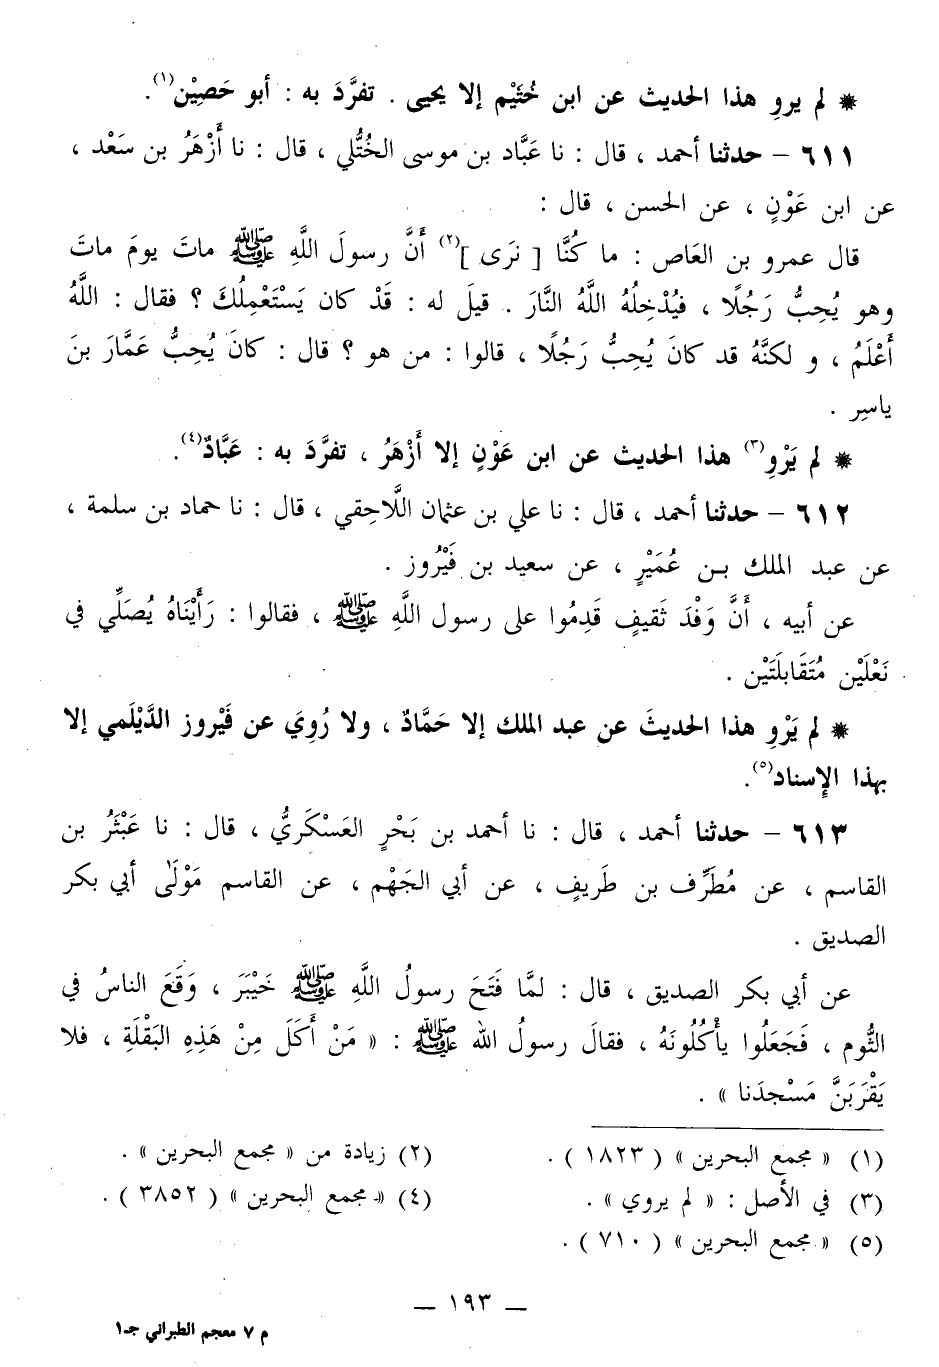 * لم يروِ هذا الحديث عن ابن خُثَيْم إلا يحيى . تفرَّدَ به : أبو حَصِيْن(١).
٦١١ – حدثنا أحمد ، قال : نا عَبَّاد بن موسى الخُتُّلي ، قال : نا أَزْهَرُ بن سَعْد ،
عن ابن عَوْنٍ ، عن الحسن ، قال :
قال عمرو بن العَاص : ما كُنَّا [ نَرَى ](٢) أَنَّ رسولَ اللَّهِ ﷺ ماتَ يومَ ماتَ
وهو يُحِبُّ رَجُلًا ، فيُدْخِلُهُ اللَّهُ النَّارَ . قيلَ له : قَدْ كان يَسْتَعْمِلُكَ ؟ فقال : اللَّهُ
أَعْلَمُ ، و لكنَّهُ قد كانَ يُحِبُّ رَجُلًا ، قالوا : من هو ؟ قال : كانَ يُحِبُّ عَمَّارَ بنَ
ياسِر .
* لم يَرْوِ(٣) هذا الحديث عن ابن عَوْنٍ إلا أَزْهَرُ ، تفرَّدَ به : عَبَّادٌ(٤).
٦١٢ – حدثنا أحمد ، قال : نا علي بن عثمان اللَّاحِقي ، قال : نا حماد بن سلمة ،
عن عبد الملك بن عُمَيْرٍ ، عن سعيد بن فَيْرُوز .
عن أبيه ، أَنَّ وَفْدَ ثَقيفٍ قَدِمُوا على رسول اللَّهِ ﷺ ، فقالوا : رَأَيْنَاهُ يُصَلِّي في
نَعْلَيْن مُتَقَابلَتَيْن .
* لم يَرْوِ هذا الحديثَ عن عبد الملك إلا حَمَّادٌ ، ولا رُوِيَ عن فَيْروز الدَّيْلَمي إلا
بهذا الإسناد(٥).
٦١٣ – حدثنا أحمد ، قال : نا أحمد بن بَحْرٍ العَسْكَريُّ ، قال : نا عَبْثَرُ بن
القاسم ، عن مُطَرِّف بن طَريفٍ ، عن أبي الجَهْم ، عن القاسم مَوْلَى أبي بكر
الصديق .
عن أبي بكر الصديق ، قال : لمَّا فَتَحَ رسولُ اللَّهِ ﷺ خَيْبَرَ ، وَقَعَ الناسُ في
الثُّوم ، فَجَعَلُوا يأْكُلُونَهُ ، فقالَ رسولُ الله ﷺ : « مَنْ أَكَلَ مِنْ هَذِهِ البَقْلَةِ ، فلا
يَقْرَبَنَّ مَسْجدَنا » .
(١) « مجمع البحرين » ( ١٨٢٣ ) . (٢) زيادة من « مجمع البحرين » .
(٣) في الأصل : « لم يروي » . (٤) « مجمع البحرين » ( ٣٨٥٢ ) .
(٥) « مجمع البحرين » ( ٧١٠ ) .
— ١٩٣ —
م ٧ معجم الطبراني جـ١